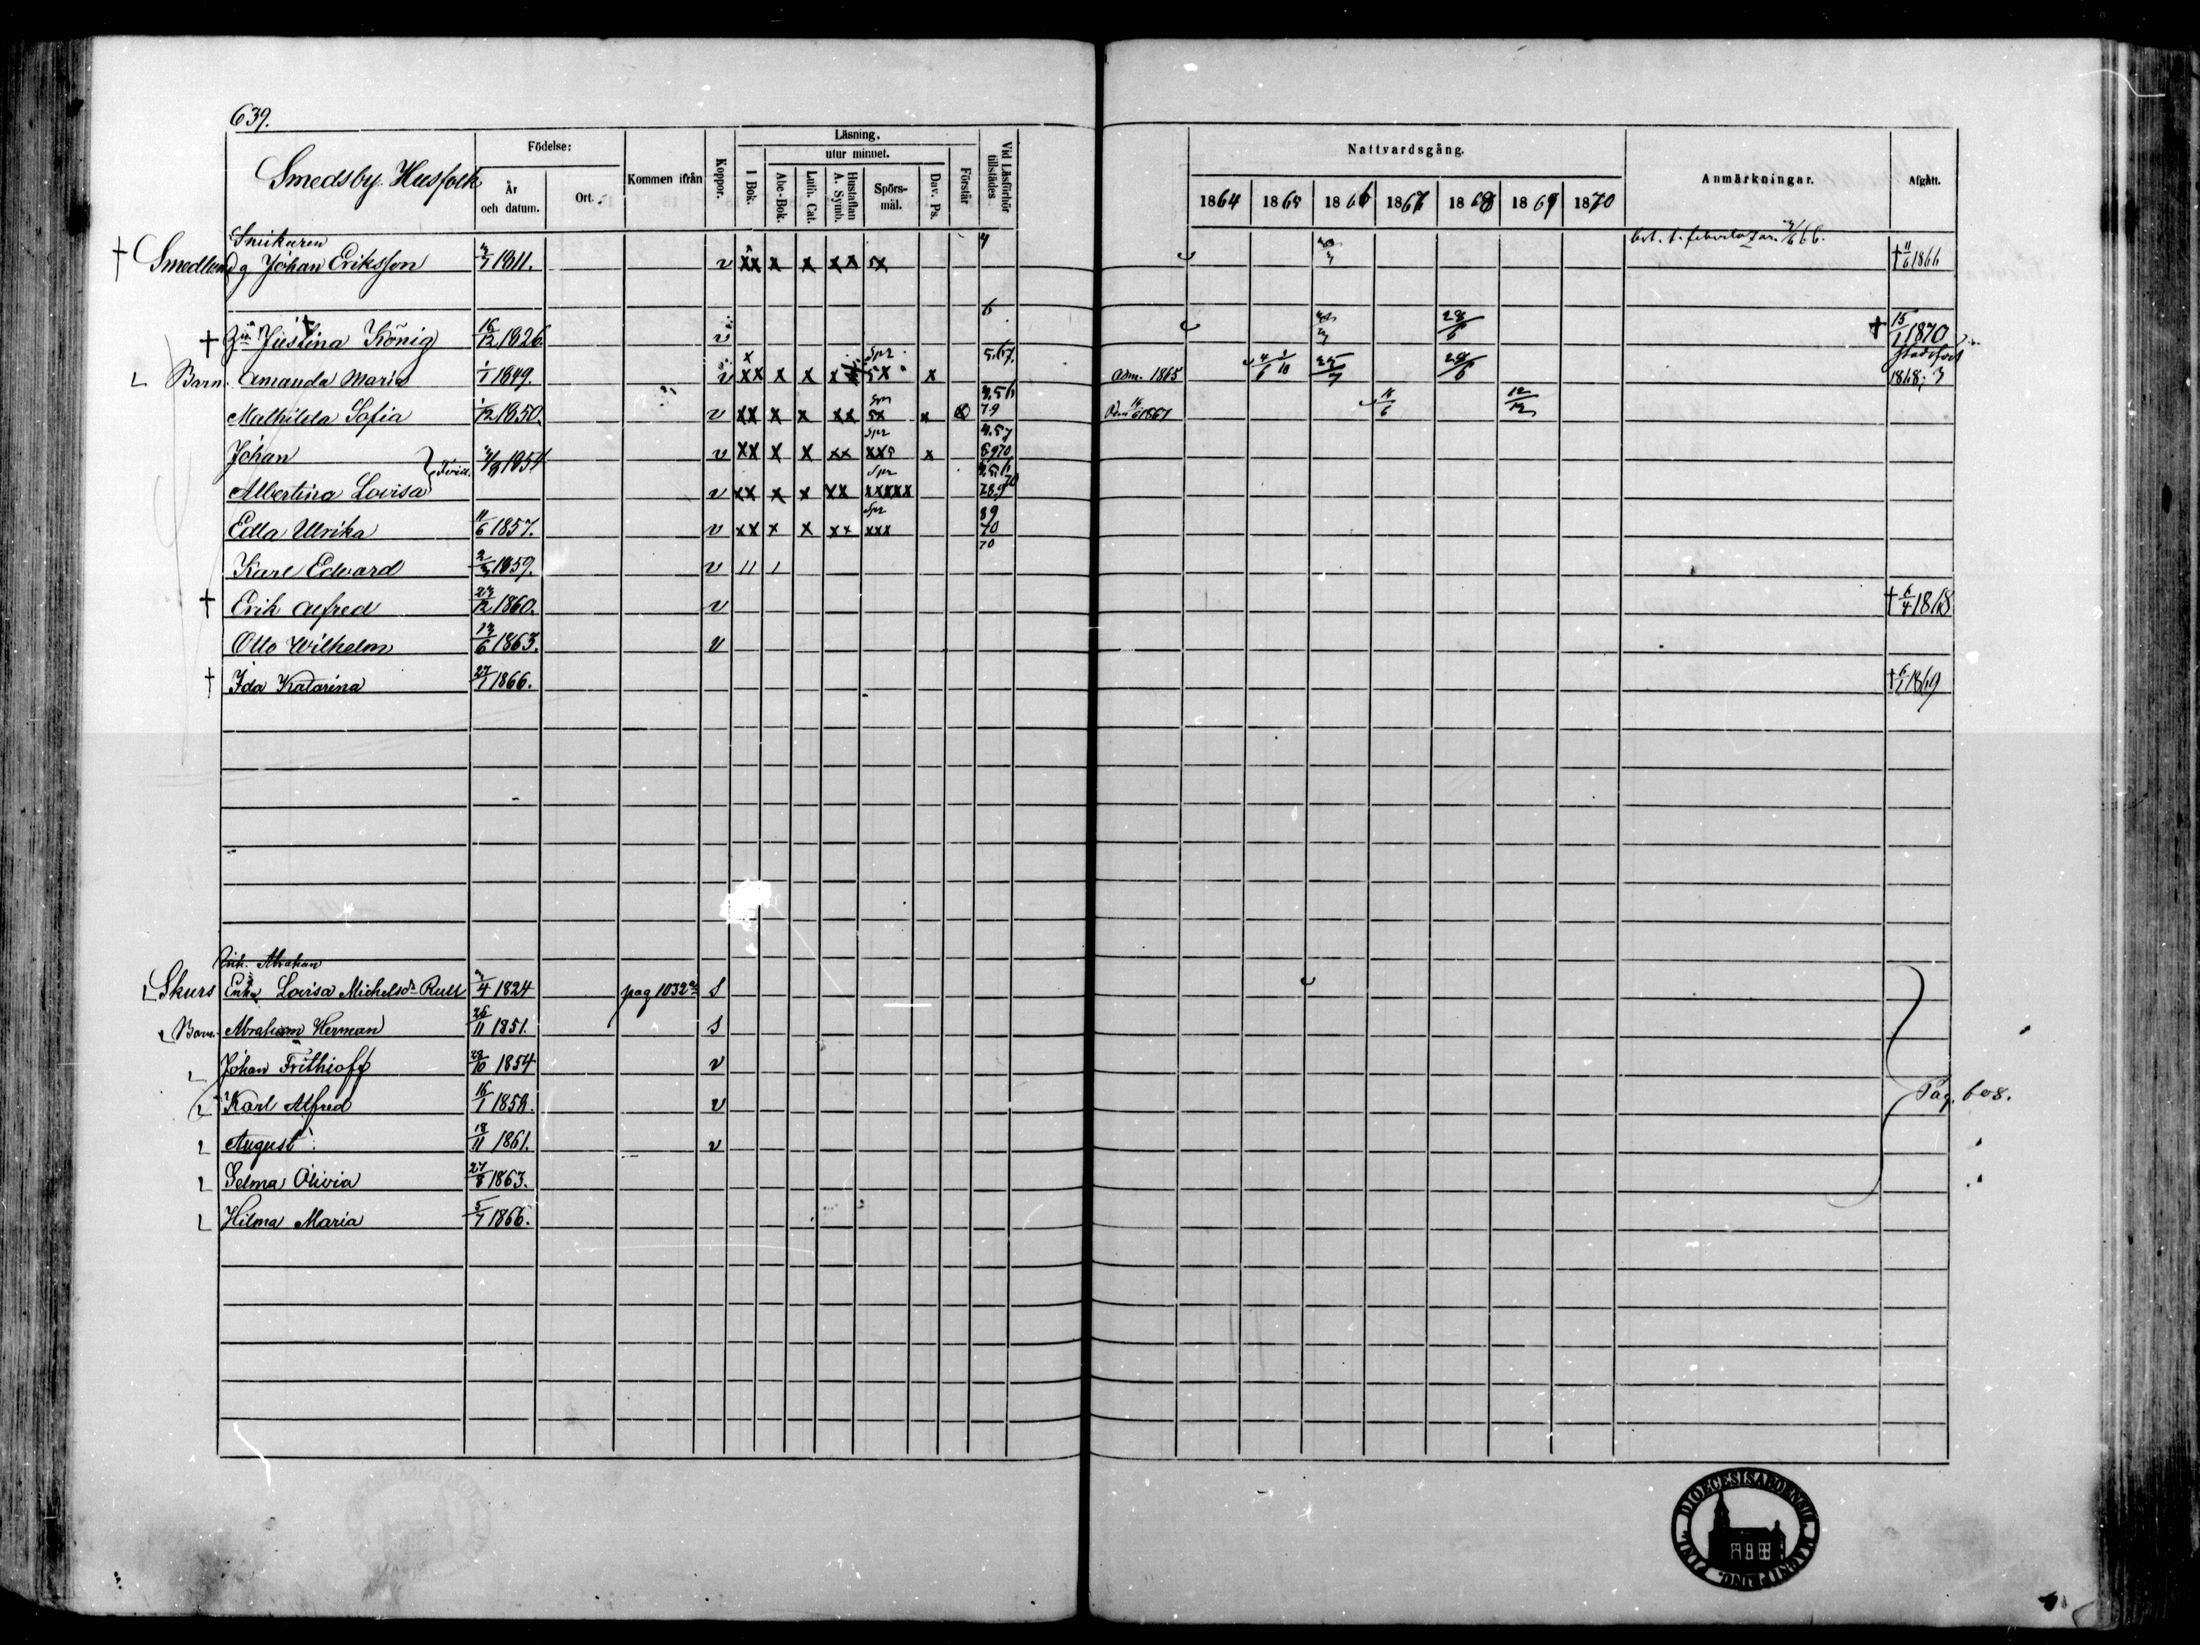 639.
Smedsby Husfolk
Födelse:
År och datum.
Ort.
Kommen ifrån
Koppor.
Läsning.
I Bok.
utur minnet.
Abc-Bok.
Luth. Cat.
Hustaflan A. Symb.
Spörs-mål.
Dav. Ps.
Förstår
Vid Läsförhör tillstädes
Nattvardsgång.
1864 1865 1866 1867 1868 1869 1870
Anmärkningar.
Afgått.
Snikaren
† Smedlund g Johan Eriksson 1811. v xx x x xx 5x 11/6 1866
† Justina König 16/12 1826. v 28/6 † 15/1 1870
Barn. Amanda Maria 1/1 1849. v xx x x x 5x x 5.67. Adm. 1865 25/ 28/6 1868;
Mathilda Sofia 1/12 1850. v xx x x xx Spr 5x x 79 16/6 1867 12/12
Johan 1854 v xx x x xx Spr xx5 x
Albertina Lovisa v xx x x xx Spr xxxxx
Edla Ulrika 11/6 1857. v xx x x xx Spr xxx 89 70
Karl Edvard 2/3 1859. v 70
† Erik Alfred 27/12 1860. v † 6/4 1868
Otto Wilhelm 13/6 1863. v
† Ida Katarina 27/1 1866. † 6/1 1869
Erik. Abraham
Skurs Enka Lovisa Michelsdr Rull /4 1824 pag 1032 s
Barn. Abraham Herman 26/11 1851. s
Johan Frithioff 28/10 1854 v
Karl Alfred 16/1 1858. v Pag. 608.
August 18/11 1861. v
Selma Olivia 27/8 1863.
Hilma Maria 5/7 1866.